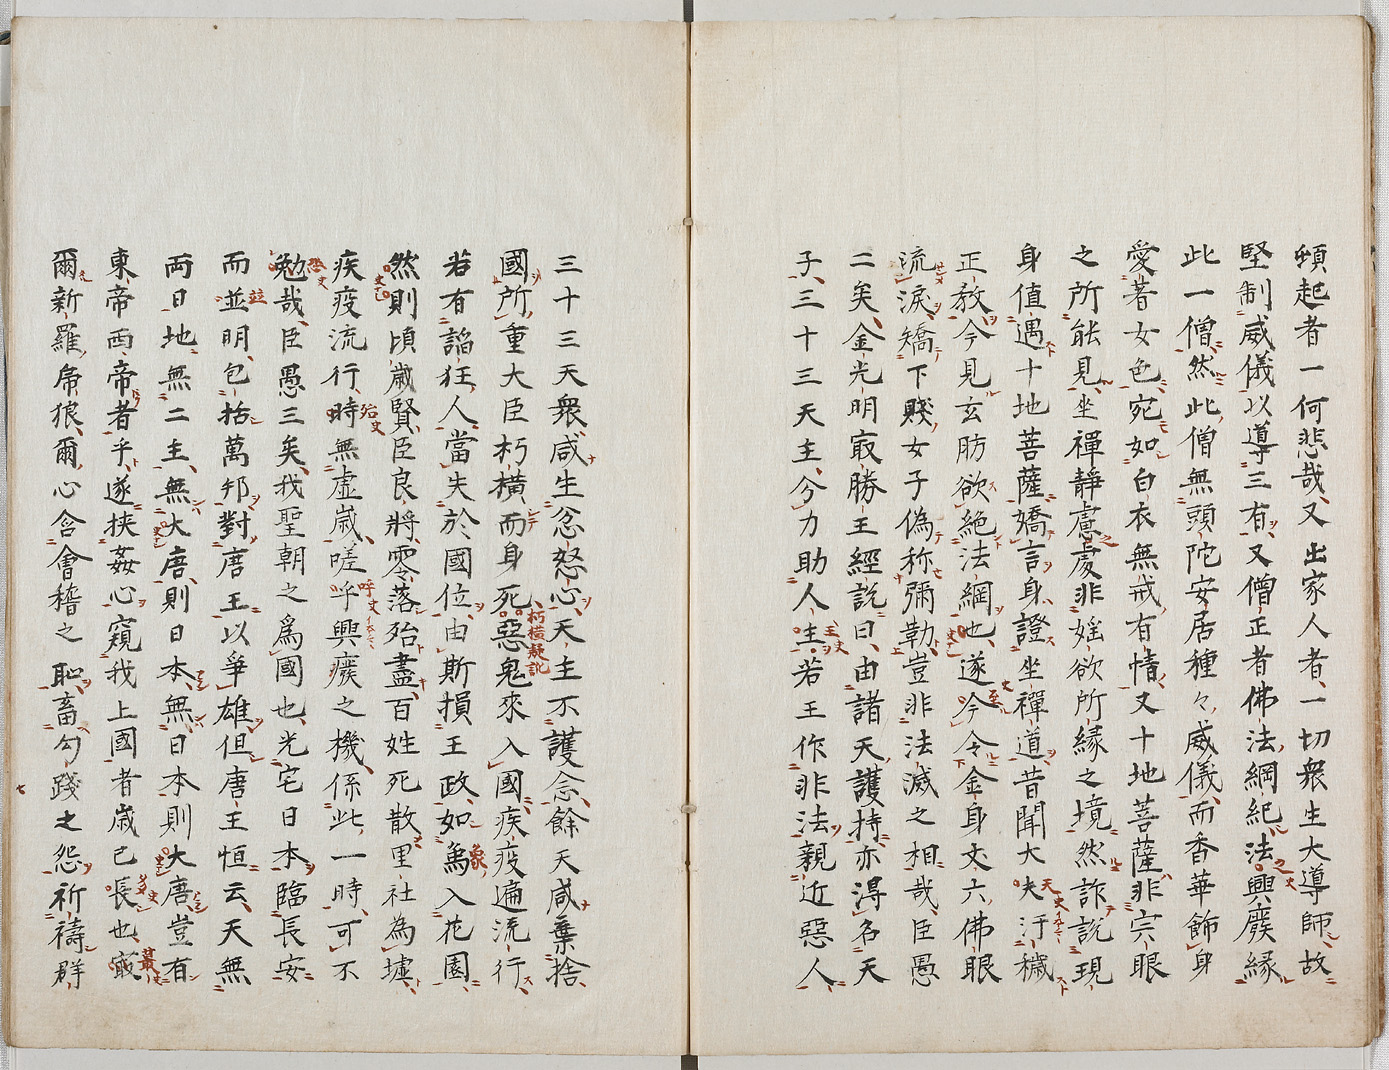 頻起者一何悲哉又出家人者一切衆生大導師故
堅制威儀以導三有又僧正者佛法綱紀法興廢縁
此一僧然此僧無頭陀安居種々威儀而香華飾身
愛著女色宛如白衣無戒有情又十地菩薩非宗眼
之所能見坐禪靜慮處非婬欲所縁之境然詐説現
身值遇十地菩薩嬌言身證坐禪道昔聞大夫汙穢
正教今見玄肪欲絶法綱也遂今令金身丈六佛眼
流淚矯下賤女子偽称彌勒豈非法滅之相哉臣愚
二矣金光明寂勝王經説曰由諸天護持亦淂名天
子三十三天主分力助人主若王作非法親近惡人
三十三天衆咸生忿怒心天主不護念餘天咸棄捨
國所重大臣朽橫而身死惡鬼來入國疾疫遍流行
若有諂狂人當失於國位由斯損王政如為入花園
然則頃歲賢臣良將零落殆盡百姓死散里社為墟
疾疫流行時無虚歲嗟乎興癈之機係此一時可不
勉哉臣愚三矣我聖朝之為國也光宅日本臨長安
而並明包括萬邦對唐王以爭雄但唐王恒云天無
両日地無二主無大唐則日本無日本則大唐豈有
東帝西帝者乎遂挾姦心窺我上國者歲已長也寂
爾新羅帋狼爾心含會稽之恥畜勾踐之怨祈禱群
朽橫疑訛